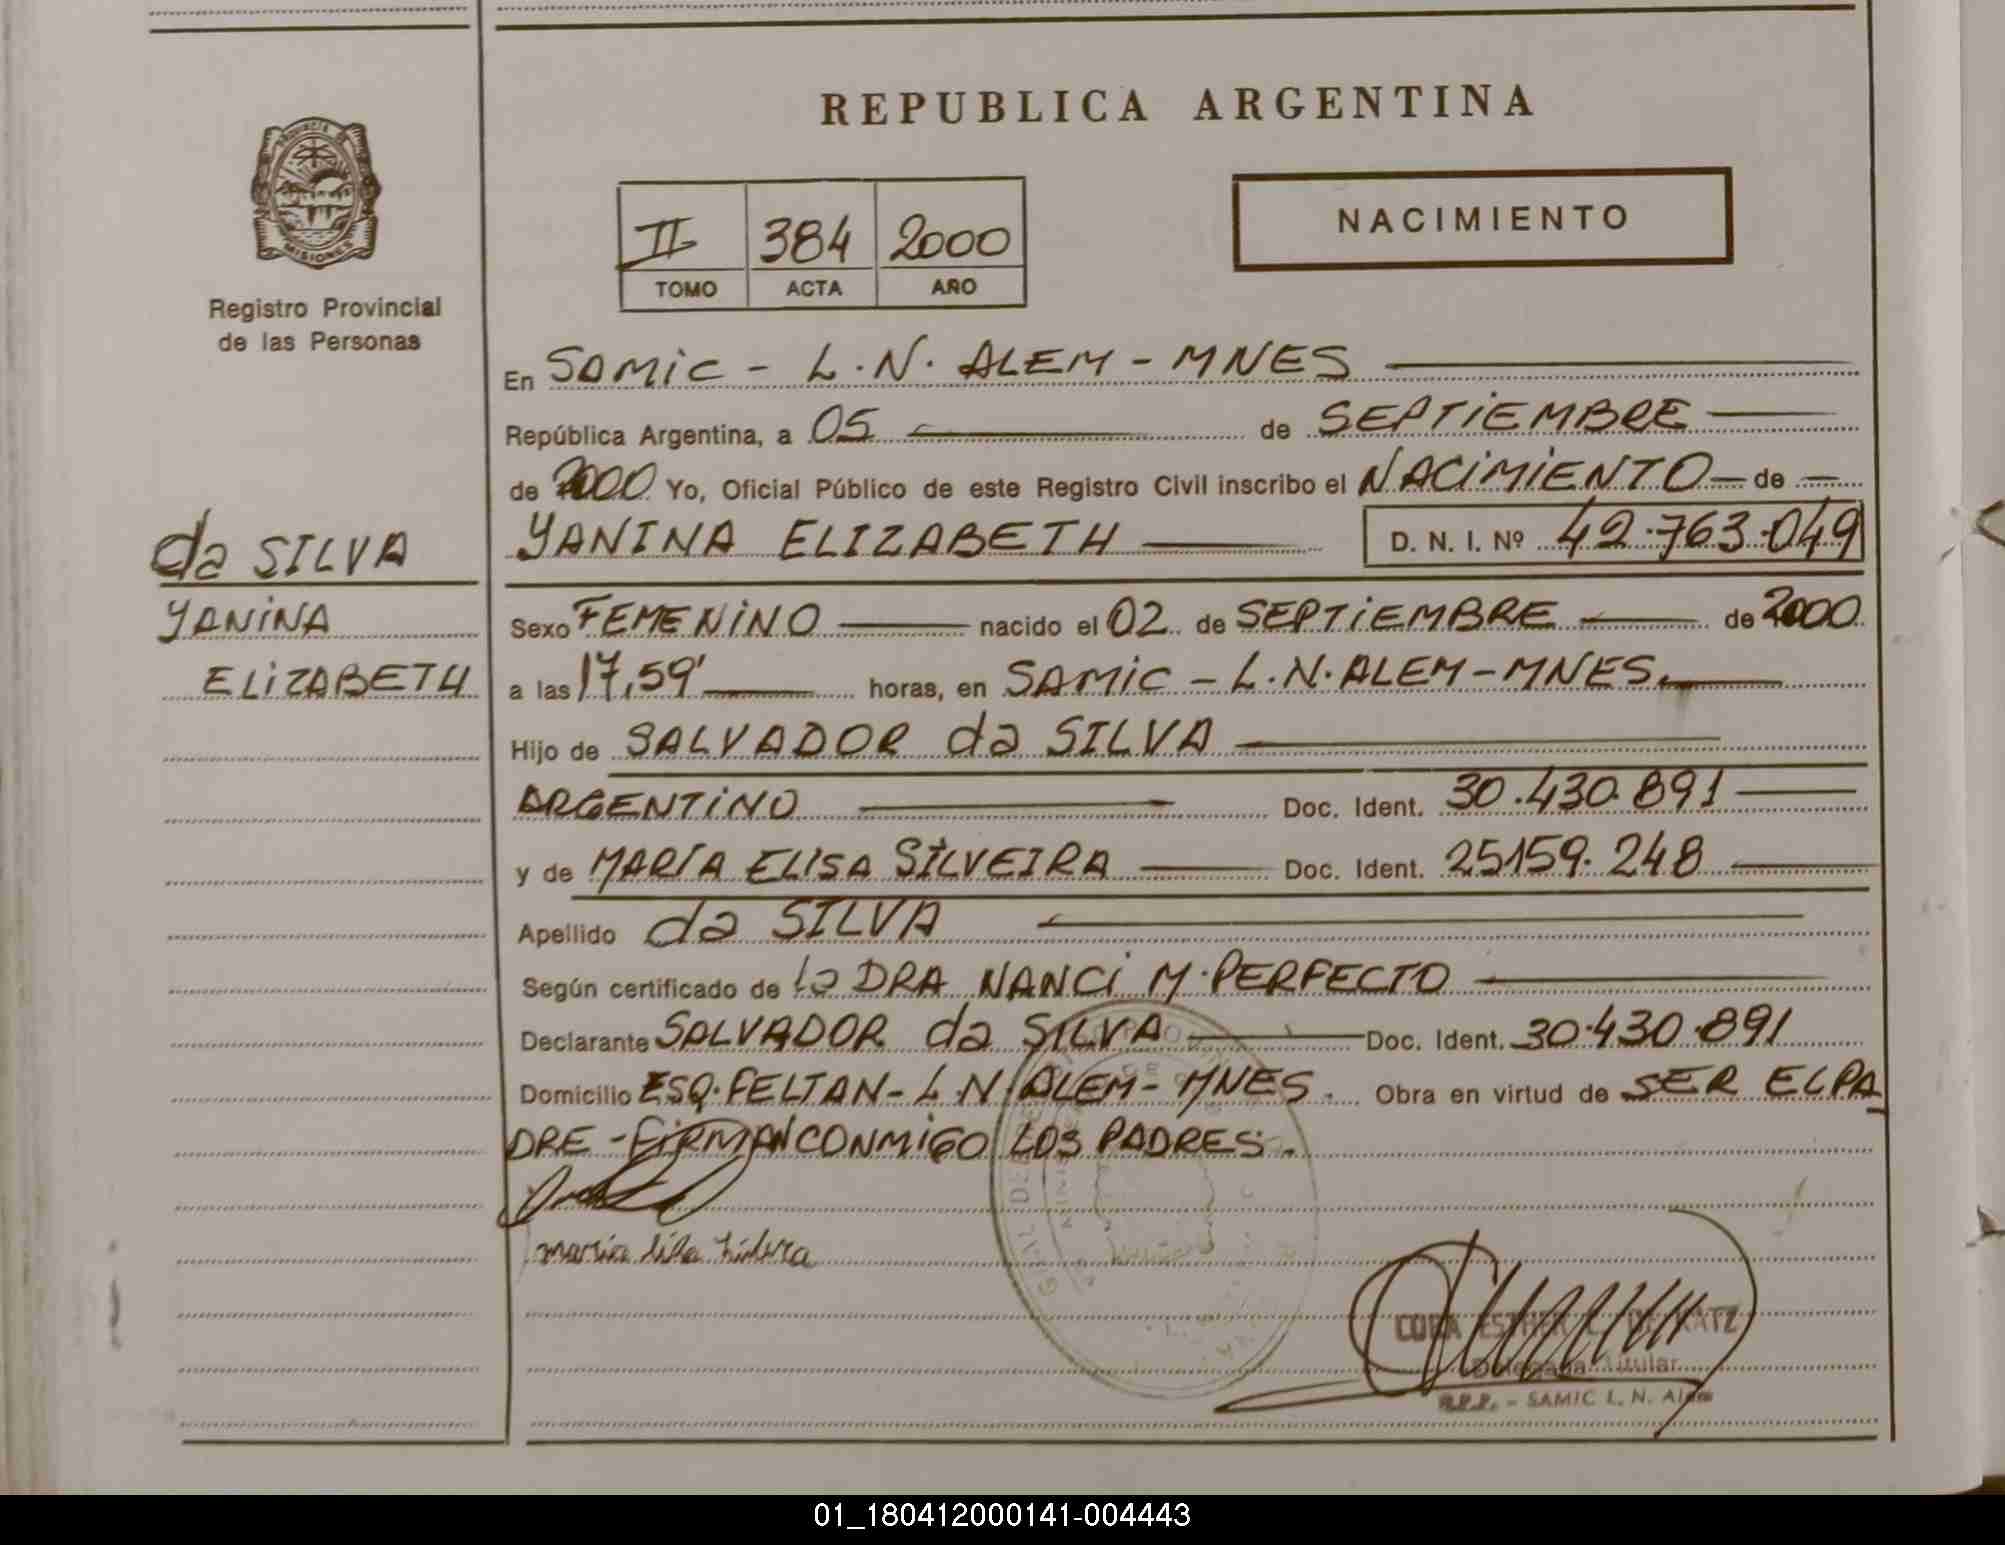 REPUBLICA ARGENTINA
PROVINCIA DE
MISIONES
Registro Provincial
de las Personas
II 384 2000
TOMO ACTA AÑO
NACIMIENTO
En SAMIC - L.N. ALEM - MNES
República Argentina, a 05 de SEPTIEMBRE
de 2000 Yo, Oficial Público de este Registro Civil inscribo el NACIMIENTO de
YANINA ELIZABETH D. N. I. Nº 42.763.049
da SILVA
YANINA
ELIZABETH
Sexo FEMENINO nacido el 02 de SEPTIEMBRE de 2000
a las 17,59' horas, en SAMIC - L.N. ALEM - MNES.
Hijo de SALVADOR da SILVA
ARGENTINO Doc. Ident. 30.430.891
y de MARÍA ELISA SILVEIRA Doc. Ident. 25159.248
Apellido da SILVA
Según certificado de la DRA NANCI M. PERFECTO
Declarante SALVADOR da SILVA Doc. Ident. 30.430.891
Domicilio ESQ. FELTAN - L.N. ALEM - MNES. Obra en virtud de SER EL PA
DRE - FIRMAN CONMIGO LOS PADRES.
maria
CORA ESTHER DE KATZ
Delegada Titular
SAMIC L. N. Alem
01_180412000141-004443